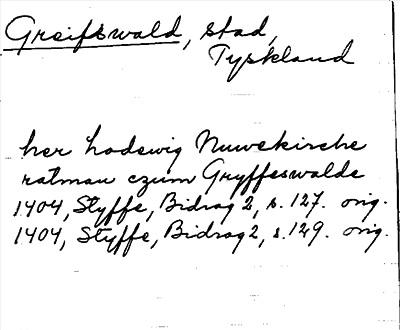 Greifswald, stad,
Tyskland
her lodewig Nuwekirche
ratman czum Gryffeswalde
1404, Styffe, Bidrag 2, s. 127. orig.
1404, Styffe, Bidrag 2, s. 129. orig.